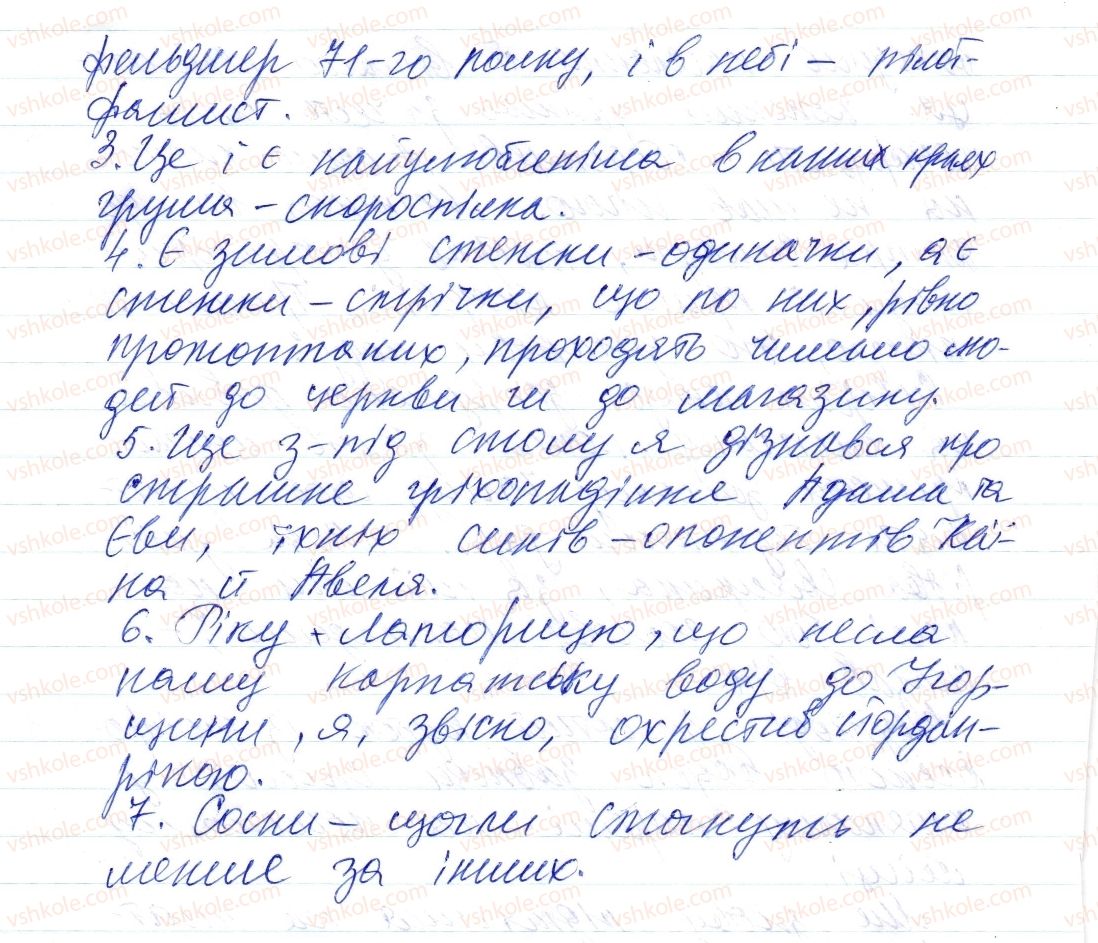 фельдшер 71-го полку, і в небі – пілот-
фашист.
3. Це і є найулюбленіша в наших краях
груша – скороспілка.
4. Є зимові стежки – одиначки, а є
стежки – стрічки, що по них, рівно
протоптаних, проходять чимало лю-
дей до церкви чи до магазину.
5. Ще з-під столу я дізнався про
страшне гріхопадіння Адама та
Єви, їхніх синів – опонентів Каї-
на й Авеля.
6. Ріку - Латорицю, що несла
нашу карпатську воду до Угор-
щини, я, звісно, охрестив Йордан-
рікою.
7. Сосни – щогли стануть не
менше за інших.